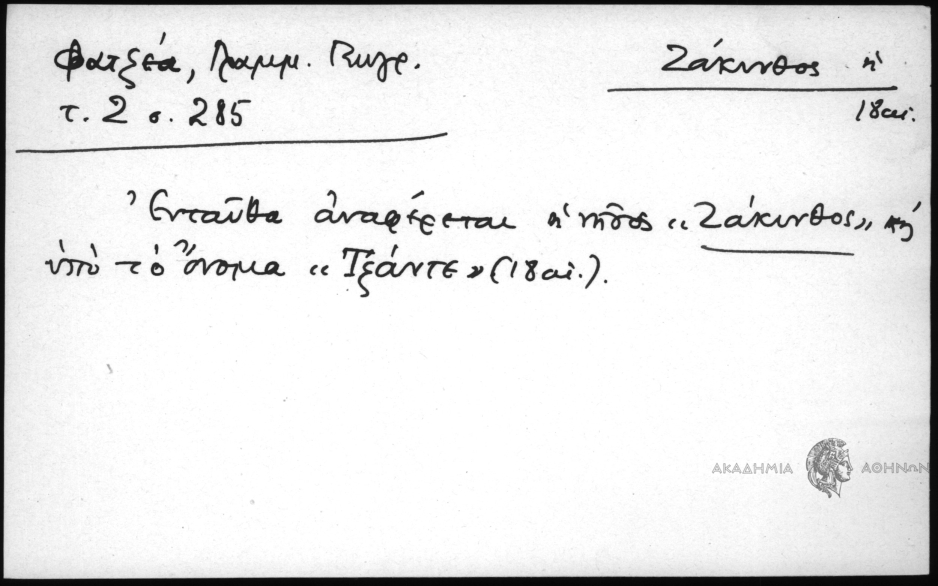 Φατζεά, Γραμμ. Κυθρ.
τ. 2 σ. 285
Ζάκυνθος ἡ
18 αἰ.
Ἐνταῦθα ἀναφέρεται ἡ νῆσος «Ζάκινθος» καὶ
ὑπὸ τὸ ὄνομα «Τζάντε» (18 αἰ.).
ΑΚΑΔΗΜΙΑ ΑΘΗΝΩΝ